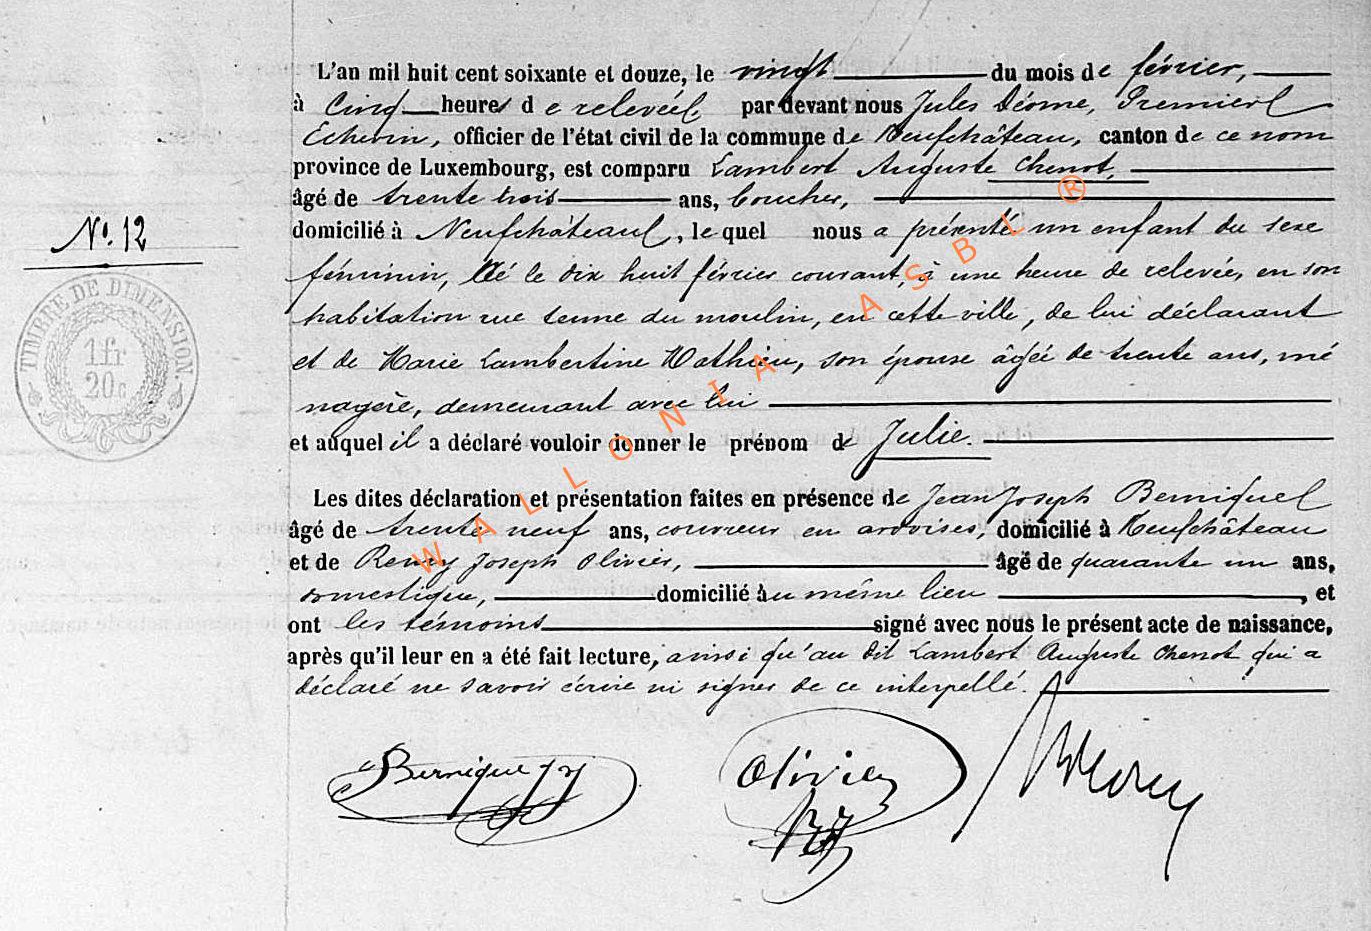 L'an mil huit cent soixante et douze, le vingt du mois de février,
à Cinq heures de relevée, par devant nous Jules Déome, Premier
Echevin, officier de l'état civil de la commune de Neufchâteau, canton de ce nom
province de Luxembourg, est comparu Lambert Auguste Chenot,
âgé de trente trois ans, boucher,
domicilié à Neufchâteau, le quel nous a présenté un enfant du sexe
N°. 12
féminin, Né le dix huit février courant, à une heure de relevée, en son
habitation rue tenue du moulin, en cette ville, de lui déclarant
et de Marie Lambertine Mathieu, son épouse âgée de trente ans, mé
nagère, demeurant avec lui
et auquel il a déclaré vouloir donner le prénom de Julie.
TIMBRE DE DIMENSION
1 fr
20 c
Les dites déclaration et présentation faites en présence de Jean Joseph Bernique
âgé de trente neuf ans, couvreur en ardoises, domicilié à Neufchâteau
et de Remy Joseph Olivier, âgé de quarante un ans,
domestique, domicilié au même lieu, et
ont les témoins signé avec nous le présent acte de naissance,
après qu'il leur en a été fait lecture, ainsi qu'au dit Lambert Auguste Chenot qui a
déclaré ne savoir écrire ni signer de ce interpellé.
Bernique JJ
Olivier
RJ
WALLONIA ASBL ®